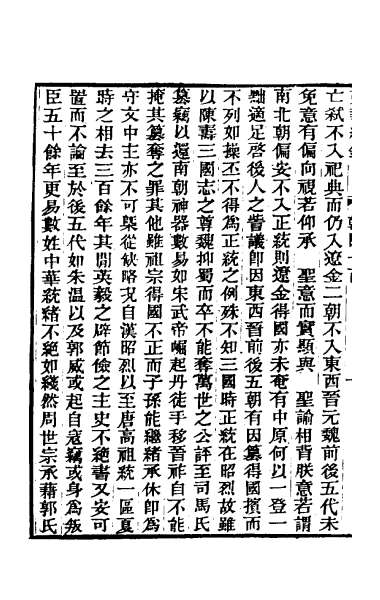 亡弑不入祀典而仍入遼金二朝不入東西晉元魏前後五代未
免意有偏向視若仰承 聖意而實顯與 聖諭相背朕意若謂
南北朝偏安不入正統則遼金得國亦未奄有中原何以一登一
黜適足啓後人之訾議卽因東西晉前後五朝有因簒得國擯而
不列如操丕不得為正統之例殊不知三國時正統在昭烈故雖
以陳壽三國志之尊魏抑蜀而卒不能奪萬世之公評至司馬氏
簒竊以還南朝神器數易如宋武帝崛起丹徒手移晉祚自不能
掩其簒奪之罪其他雖祖宗得國不正而子孫能繼緒承休卽為
守文中主亦不可槩從缺略况自漢昭烈以至唐高祖統一區夏
時之相去三百餘年其間英毅之辟節儉之主史不絶書又安可
置而不論至於後五代如朱温以及郭威或起自寇竊或身為叛
臣五十餘年更易數姓中華統緒不絶如綫然周世宗承藉郭氏